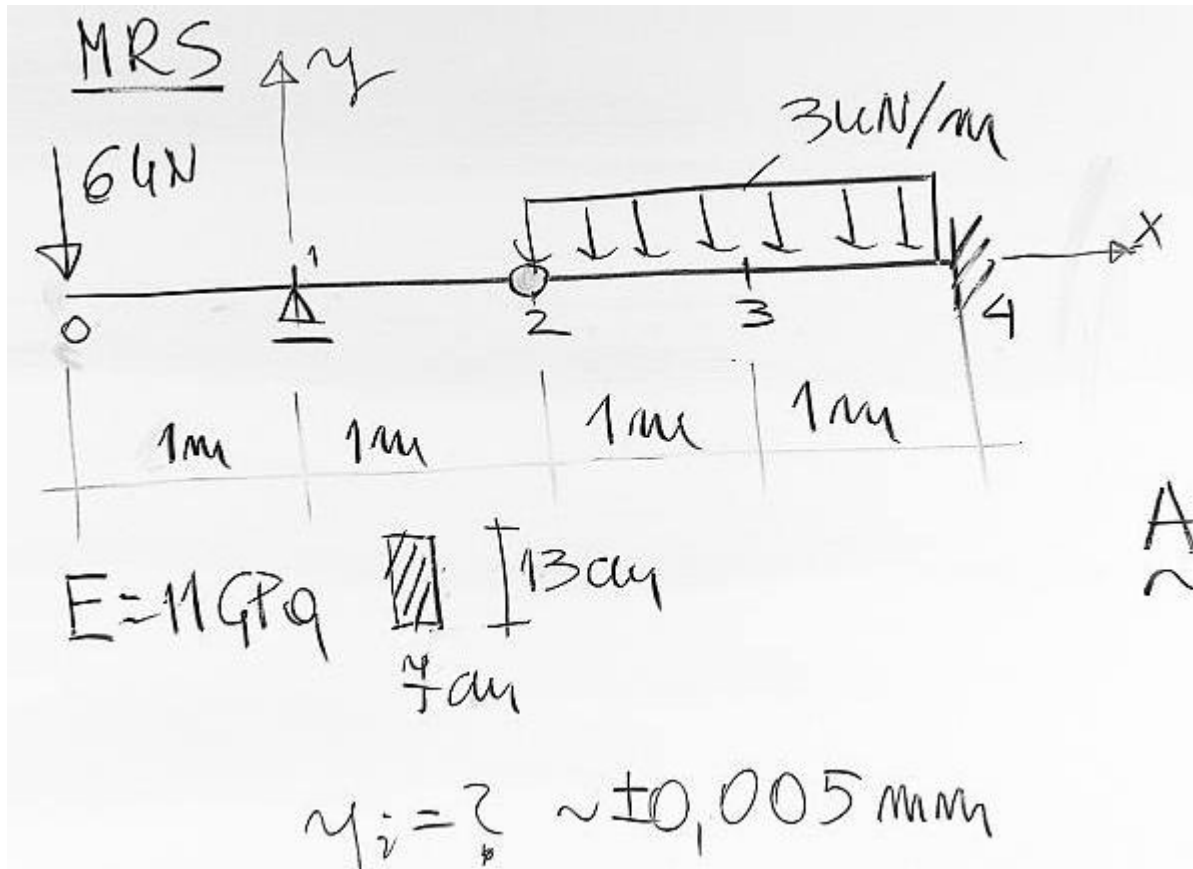 MRS
y
6 kN
3 kN/m
X
1
0
2
3
4
1m 1m 1m 1m
A
~
E=11GPa
13 cm
cm
yi=? ~±0,005mm